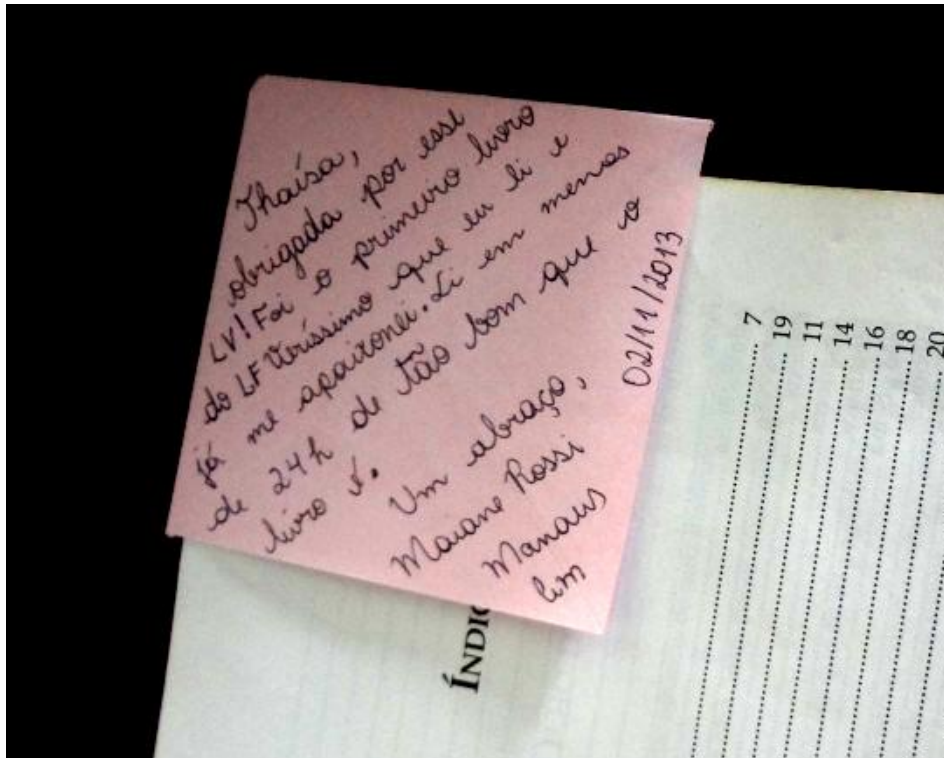 Thaísa,
obrigada por esse
LV! Foi o primeiro livro
do LF Veríssimo que eu li e
já me apaixonei. Li em menos
de 24h de tão bom que o
livro é.
Um abraço,
Maiane Rossi
Manaus
02/11/2013
ÍNDIC
7
19
11
14
16
18
20